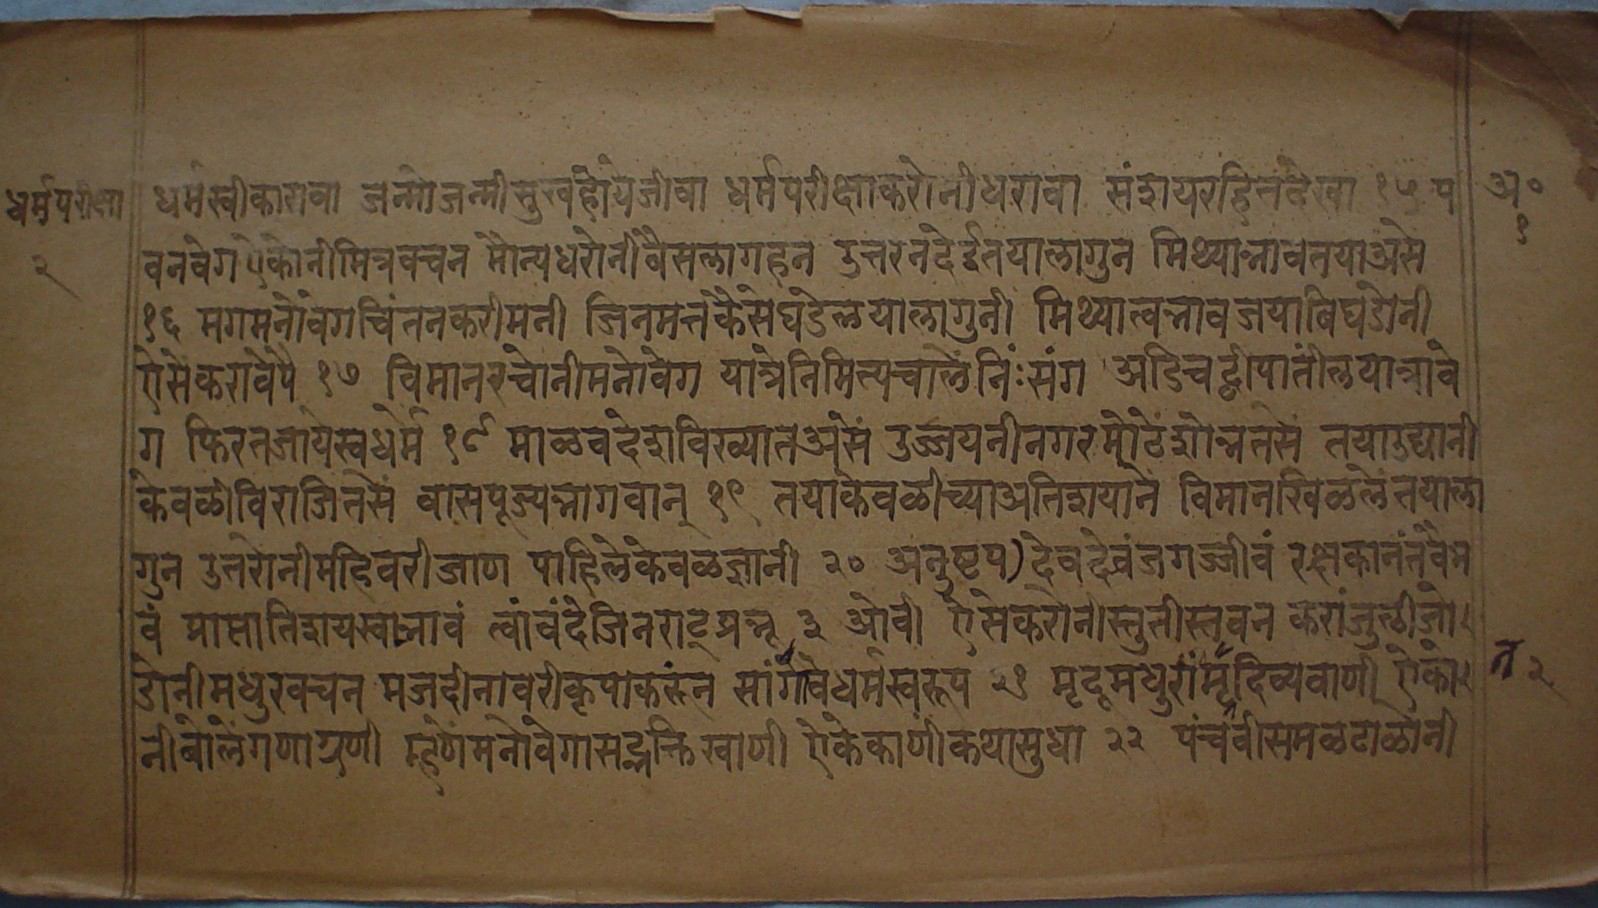 धर्मपरीक्षा
२
अ०
१
धर्मस्वीकारावा जन्मोजन्मीसुखहोयेजीवा धर्मपरीक्षाकरोनीधरावा संशयरहितदेखा १५ प
वनवेग ऐकोनीमित्रवचन मौन्यधरोनीबैसलागहन उत्तरनदेईतयालागुन मिथ्याभावतयाअसे
१६ मगमनोवेगचिंतनकरीमनी जिनमतकैसेघडेलयालागुनी मिथ्यात्वभावजयाबिघडोनी
ऐसेकरावेपै १७ विमानरचोनीमनोवेग यात्रेनिमित्यचालेनिःसंग अडिचद्वीपातीलयात्रावे
ग फिरतजायेस्वधर्म १८ माळवदेशविख्यातअसे उज्जयनीनगरमोठेंशोभतसे तयाउद्यानी
केवळीविराजितसे वासपूज्यभगवान् १९ तयाकेवळीच्याअतिशयाने विमानखिळलेतयाला
गुन उतरोनीमहिवरीजाण पाहिलेकेवळज्ञानी २० अनुष्टप) देवदेवंजगज्जीवं रक्षकानंतवैभ
वं प्राप्तातिशयस्वभावं त्वांवंदेजिनराट्प्रभू ३ ओवी ऐसेकरोनीस्तुतीस्तवन करांजुळीजो
डोनीमधुरवचन मजदीनावरीकृपाकरून सांगावेधर्मस्वरूप २१ मृदूमधुरदिव्यवाणी ऐको
त २
नीबोलेगणाग्रणी म्हणेमनोवेगासद्भक्तिखाणी ऐकेकाणीकथासुधा २२ पंचवीसमळटाळोनी